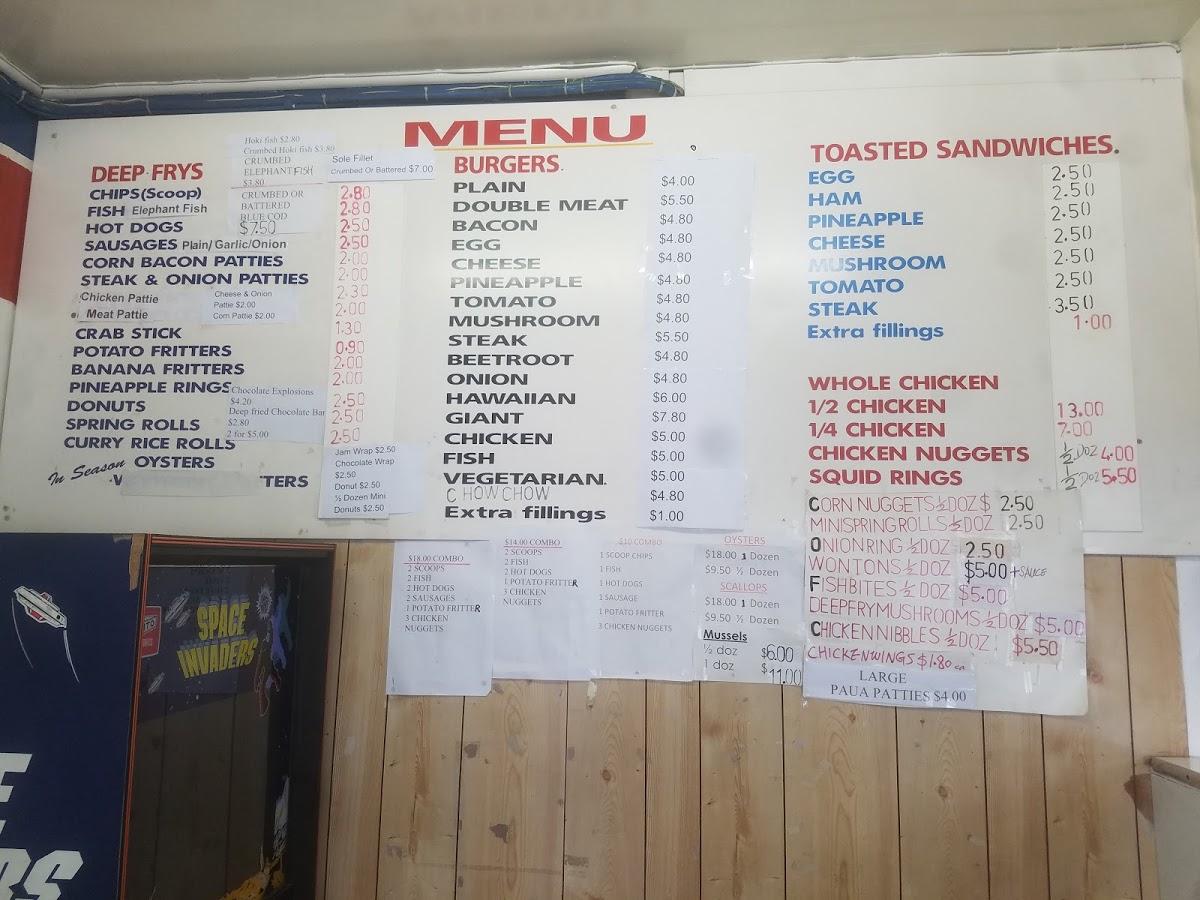 MENU
DEEP FRYS
CHIPS(Scoop)
FISH Elephant Fish
HOT DOGS
SAUSAGES Plain/ Garlic/Onion
CORN BACON PATTIES
STEAK & ONION PATTIES
Chicken Pattie
Meat Pattie
Cheese & Onion
Pattie $2.00
Corn Pattie $2.00
CRAB STICK
POTATO FRITTERS
BANANA FRITTERS
PINEAPPLE RINGS
DONUTS
SPRING ROLLS
CURRY RICE ROLLS
In Season OYSTERS
TTERS
Hoki fish $2.80
Crumbed Hoki fish $3.80
CRUMBED
ELEPHANT FISH
$3.80
CRUMBED OR
BATTERED
BLUE COD
$7.50
Sole Fillet
Crumbed Or Battered $7.00
2.80
2.80
2.50
2.50
2.00
2.00
2.30
2.00
1.30
0.90
2.00
2.00
2.50
2.50
2.50
Chocolate Explosions
$4.20
Deep fried Chocolate Bar
$2.80
2 for $5.00
Jam Wrap $2.50
Chocolate Wrap
$2.50
Donut $2.50
½ Dozen Mini
Donuts $2.50
BURGERS.
PLAIN $4.00
DOUBLE MEAT $5.50
BACON $4.80
EGG $4.80
CHEESE $4.80
PINEAPPLE $4.80
TOMATO $4.80
MUSHROOM $4.80
STEAK $5.50
BEETROOT $4.80
ONION $4.80
HAWAIIAN $6.00
GIANT $7.80
CHICKEN $5.00
FISH $5.00
VEGETARIAN. $5.00
CHOWCHOW $4.80
Extra fillings $1.00
TOASTED SANDWICHES.
EGG 2.50
HAM 2.50
PINEAPPLE 2.50
CHEESE 2.50
MUSHROOM 2.50
TOMATO 2.50
STEAK 3.50
Extra fillings 1.00
WHOLE CHICKEN
1/2 CHICKEN 13.00
1/4 CHICKEN 7.00
CHICKEN NUGGETS ½ DOZ 4.00
SQUID RINGS ½ DOZ 5.50
CORN NUGGETS ½ DOZ $ 2.50
MINI SPRING ROLLS ½ DOZ 2.50
ONION RING ½ DOZ 2.50
WONTONS ½ DOZ $5.00 + SAUCE
FISH BITES ½ DOZ $5.00
DEEP FRY MUSHROOMS ½ DOZ $5.00
CHICKEN NIBBLES ½ DOZ $5.50
CHICKEN WINGS $1.80 ea
LARGE
PAUA PATTIES $4.00
$18.00 COMBO
2 SCOOPS
2 FISH
2 HOT DOGS
2 SAUSAGES
1 POTATO FRITTER
3 CHICKEN
NUGGETS
$14.00 COMBO
2 SCOOPS
2 FISH
2 HOT DOGS
1 POTATO FRITTER
3 CHICKEN
NUGGETS
$10 COMBO
1 SCOOP CHIPS
1 FISH
1 HOT DOGS
1 SAUSAGE
1 POTATO FRITTER
3 CHICKEN NUGGETS
OYSTERS
$18.00 1 Dozen
$9.50 ½ Dozen
SCALLOPS
$18.00 1 Dozen
$9.50 ½ Dozen
Mussels
½ doz $6.00
1 doz $11.00
SPACE
INVADERS